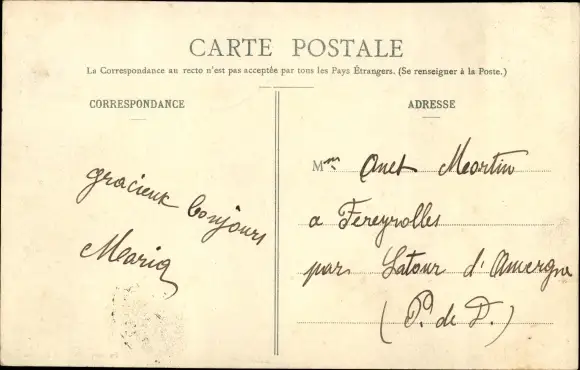 CARTE POSTALE
La Correspondance au recto n'est pas acceptée par tous les Pays Étrangers. (Se renseigner à la Poste.)
CORRESPONDANCE
gracieux bonjours
Maria
ADRESSE
Mme Anet Martin
a Fereyrolles
par Latour d'Auvergne
(P. de D.)